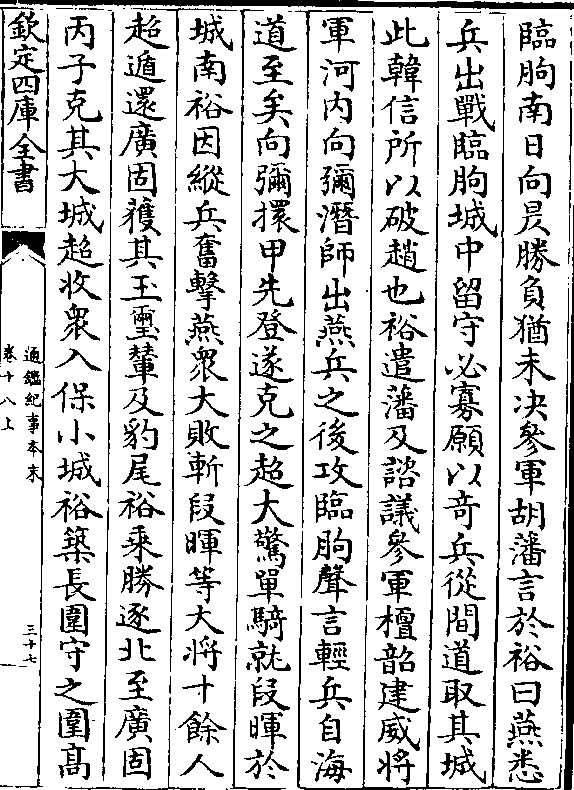 臨朐南日向昃勝負猶未决參軍胡藩言於裕曰燕悉
兵出戰臨朐城中留守必寡願以奇兵從間道取其城
此韓信所以破趙也裕遣藩及諮議參軍檀韶建威將
軍河内向彌潛師出燕兵之後攻臨朐聲言輕兵自海
道至矣向彌擐甲先登遂克之超大驚單騎就段暉於
城南裕因縱兵奮擊燕衆大敗斬段暉等大將十餘人
超遁還廣固獲其玉璽輦及豹尾裕乘勝逐北至廣固
丙子克其大城超收衆入保小城裕築長圍守之圍髙
欽定四庫全書
通鑑紀事本末
卷十八上
三十七